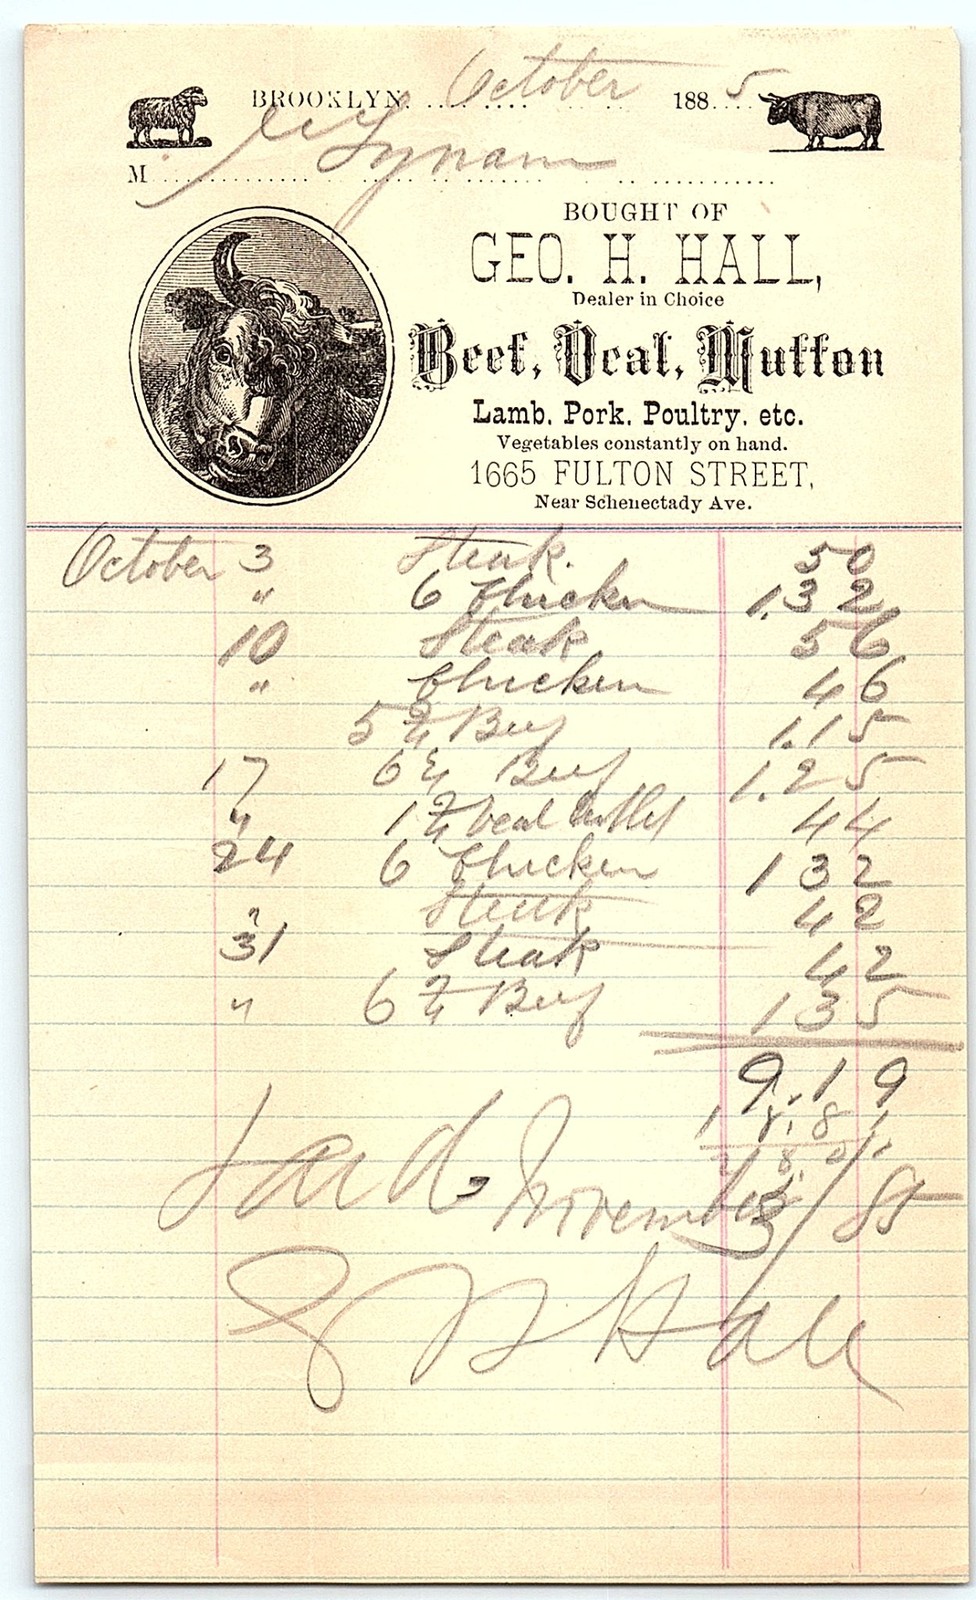 BROOKLYN, October 1885
M Lynam
BOUGHT OF
GEO. H. HALL,
Dealer in Choice
Beef, Veal, Mutton
Lamb, Pork, Poultry, etc.
Vegetables constantly on hand.
1665 FULTON STREET,
Near Schenectady Ave.
October 3 Steak. 50
" 6 Chicken 1.32
10 Steak 56
" Chicken 46
5 2/4 Beef 1.15
17 6 1/4 Beef 1.25
" 1 2/4 Veal Cutlet 44
24 6 Chicken 1 32
" Steak 42
31 Steak 42
" 6 2/4 Beef 1 35
9.19
Paid, November 3/85
Hall